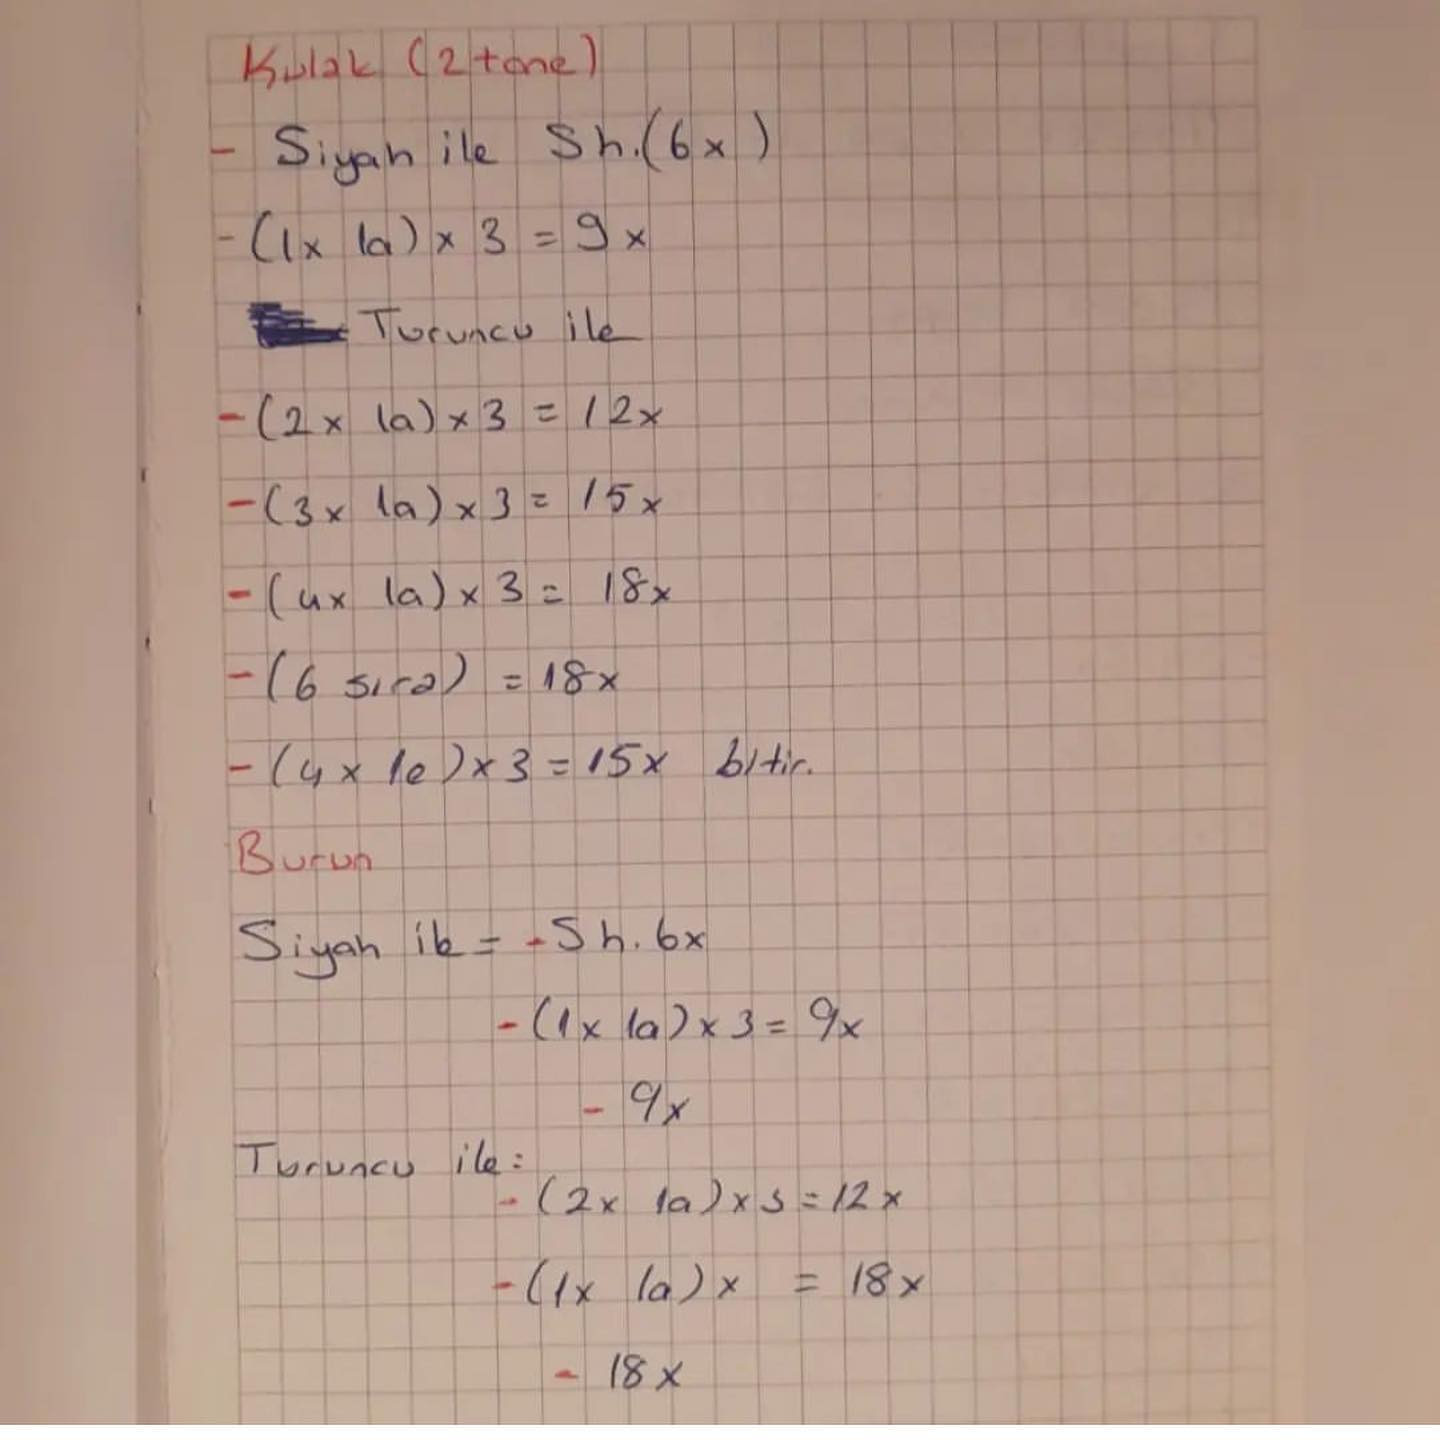 Kulak (2 tane)
- Siyah ile Sh.(6x)
- (1x 1a) x 3 = 9x
Turuncu ile
- (2x 1a) x 3 = 12x
- (3x 1a) x 3 = 15x
- (4x 1a) x 3 = 18x
- (6 sıra) = 18x
- (4x 1e) x 3 = 15x bitir.
Burun
Siyah ile = - Sh. 6x
- (1x 1a) x 3 = 9x
- 9x
Turuncu ile:
- (2x 1a) x 3 = 12x
- (1x 1a) x = 18x
- 18x